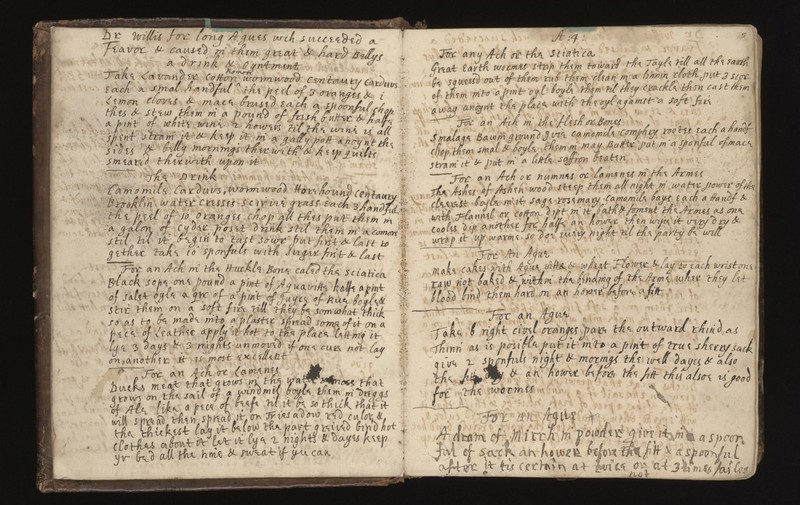 Dr Willis for long Agues wch succeeded a
feavor & caused in them great & hard Bellys
a drink & Oyntment
Take Lavonder Cotton Romon wormwood Centaury Carduus
each a smal handful the peel of 3 oranges & i
Lemon cloves & mace brused each a spoonful chop
thes & stew them in a pound of frish buter & halfe
a pint of white wine 2 howers til the wine is all
spent stram it & keep it in a gally pott anoynt the
sides & belly mornings ther with & keep quilts
smeared therwith upon it
The Drink
Camomile Carduus wormwood Horehound Centaury
Brooklim water cresses scurvie grass each 3 handful
the peel of 10 oranges chop all thes put them in
a galon of cyder poset drink stil them in a comon
stil til it begin to tast sowr put first & last to
gether take 10 sponfuls with suger first & last
For an Ach in the Huckle Bone caled the sciatica
Black sope one pound a pint of Aquavitæ halfe a pint
of salet oyle a qr of a pint of Juyce of Rue boyle &
stir them on a soft fire till they be somwhat thick
so as to be made into a plaster spread some of it on a
peece of Leather apply it hot to the place letting it
lye 3 days & 3 nights unmoved if one cure not lay
on another it is most excellent
For an Ach or Lamenes
Ducks meat that grows in the water & moss that
grows on the sail of a windmil boyle them in dreggs
of Ale like a peece of beefe til it be so thick that it
will spread then spread it on friesadow red culor &
the thickest lay it below the part greived bind hot
clothes about it let it lye 2 nights & dayes keep
yr bed all the time & sweat if you can
A :4:
For any Ach or the Sciatica
Great Earth wormes strip them toward the Tayle till all the earth
be squesed out of them rub them clean in a linnin cloth put 3 score
of them into a pint oyl boyle them til they crackle then cast them
away anoynt the place with the oyl against a soft fire
For an Ach in the flesh or Bones
Smalage Bawm ground Ivie camomile comphry rootes each a handf
chop them smal & boyle them in may Buter put in a sponful of mace
stram it & put in a litle saffron beaten
For an Ach or numnes or Lamenes in the Armes
The Ashes of Ashen wood steep them all night in water power of the
clearest boyle in it sage rosemary camomile baye each a handf &
with Flannel or cotton dipt in it bath & foment the Armes as one
cooles dip another for halfe an hower then wipe it very dry &
wrap it up warme so doe every night til the party be well
For An Ague
make cakes with Aqua vitæ & wheat Flower & lay to each wrist one
raw not baked & within the binding of the Arme wher they let
blood bind them hard on an hower before a fitt
For an Ague
Take 6 right civil oranges pare the outward rhind as
Thinn as is posible put it into a pint of true sherry sack
give 2 sponfuls night & mornings the well dayes & also
the fitt day & an hower before the fitt this alsoe is good
for the wormes
For an Ague
A dram of Mirrh in powder give it in a spoon
ful of sack an hower before the fitt & a spoonful
after it tis certain at twice or at 3 times failes
not